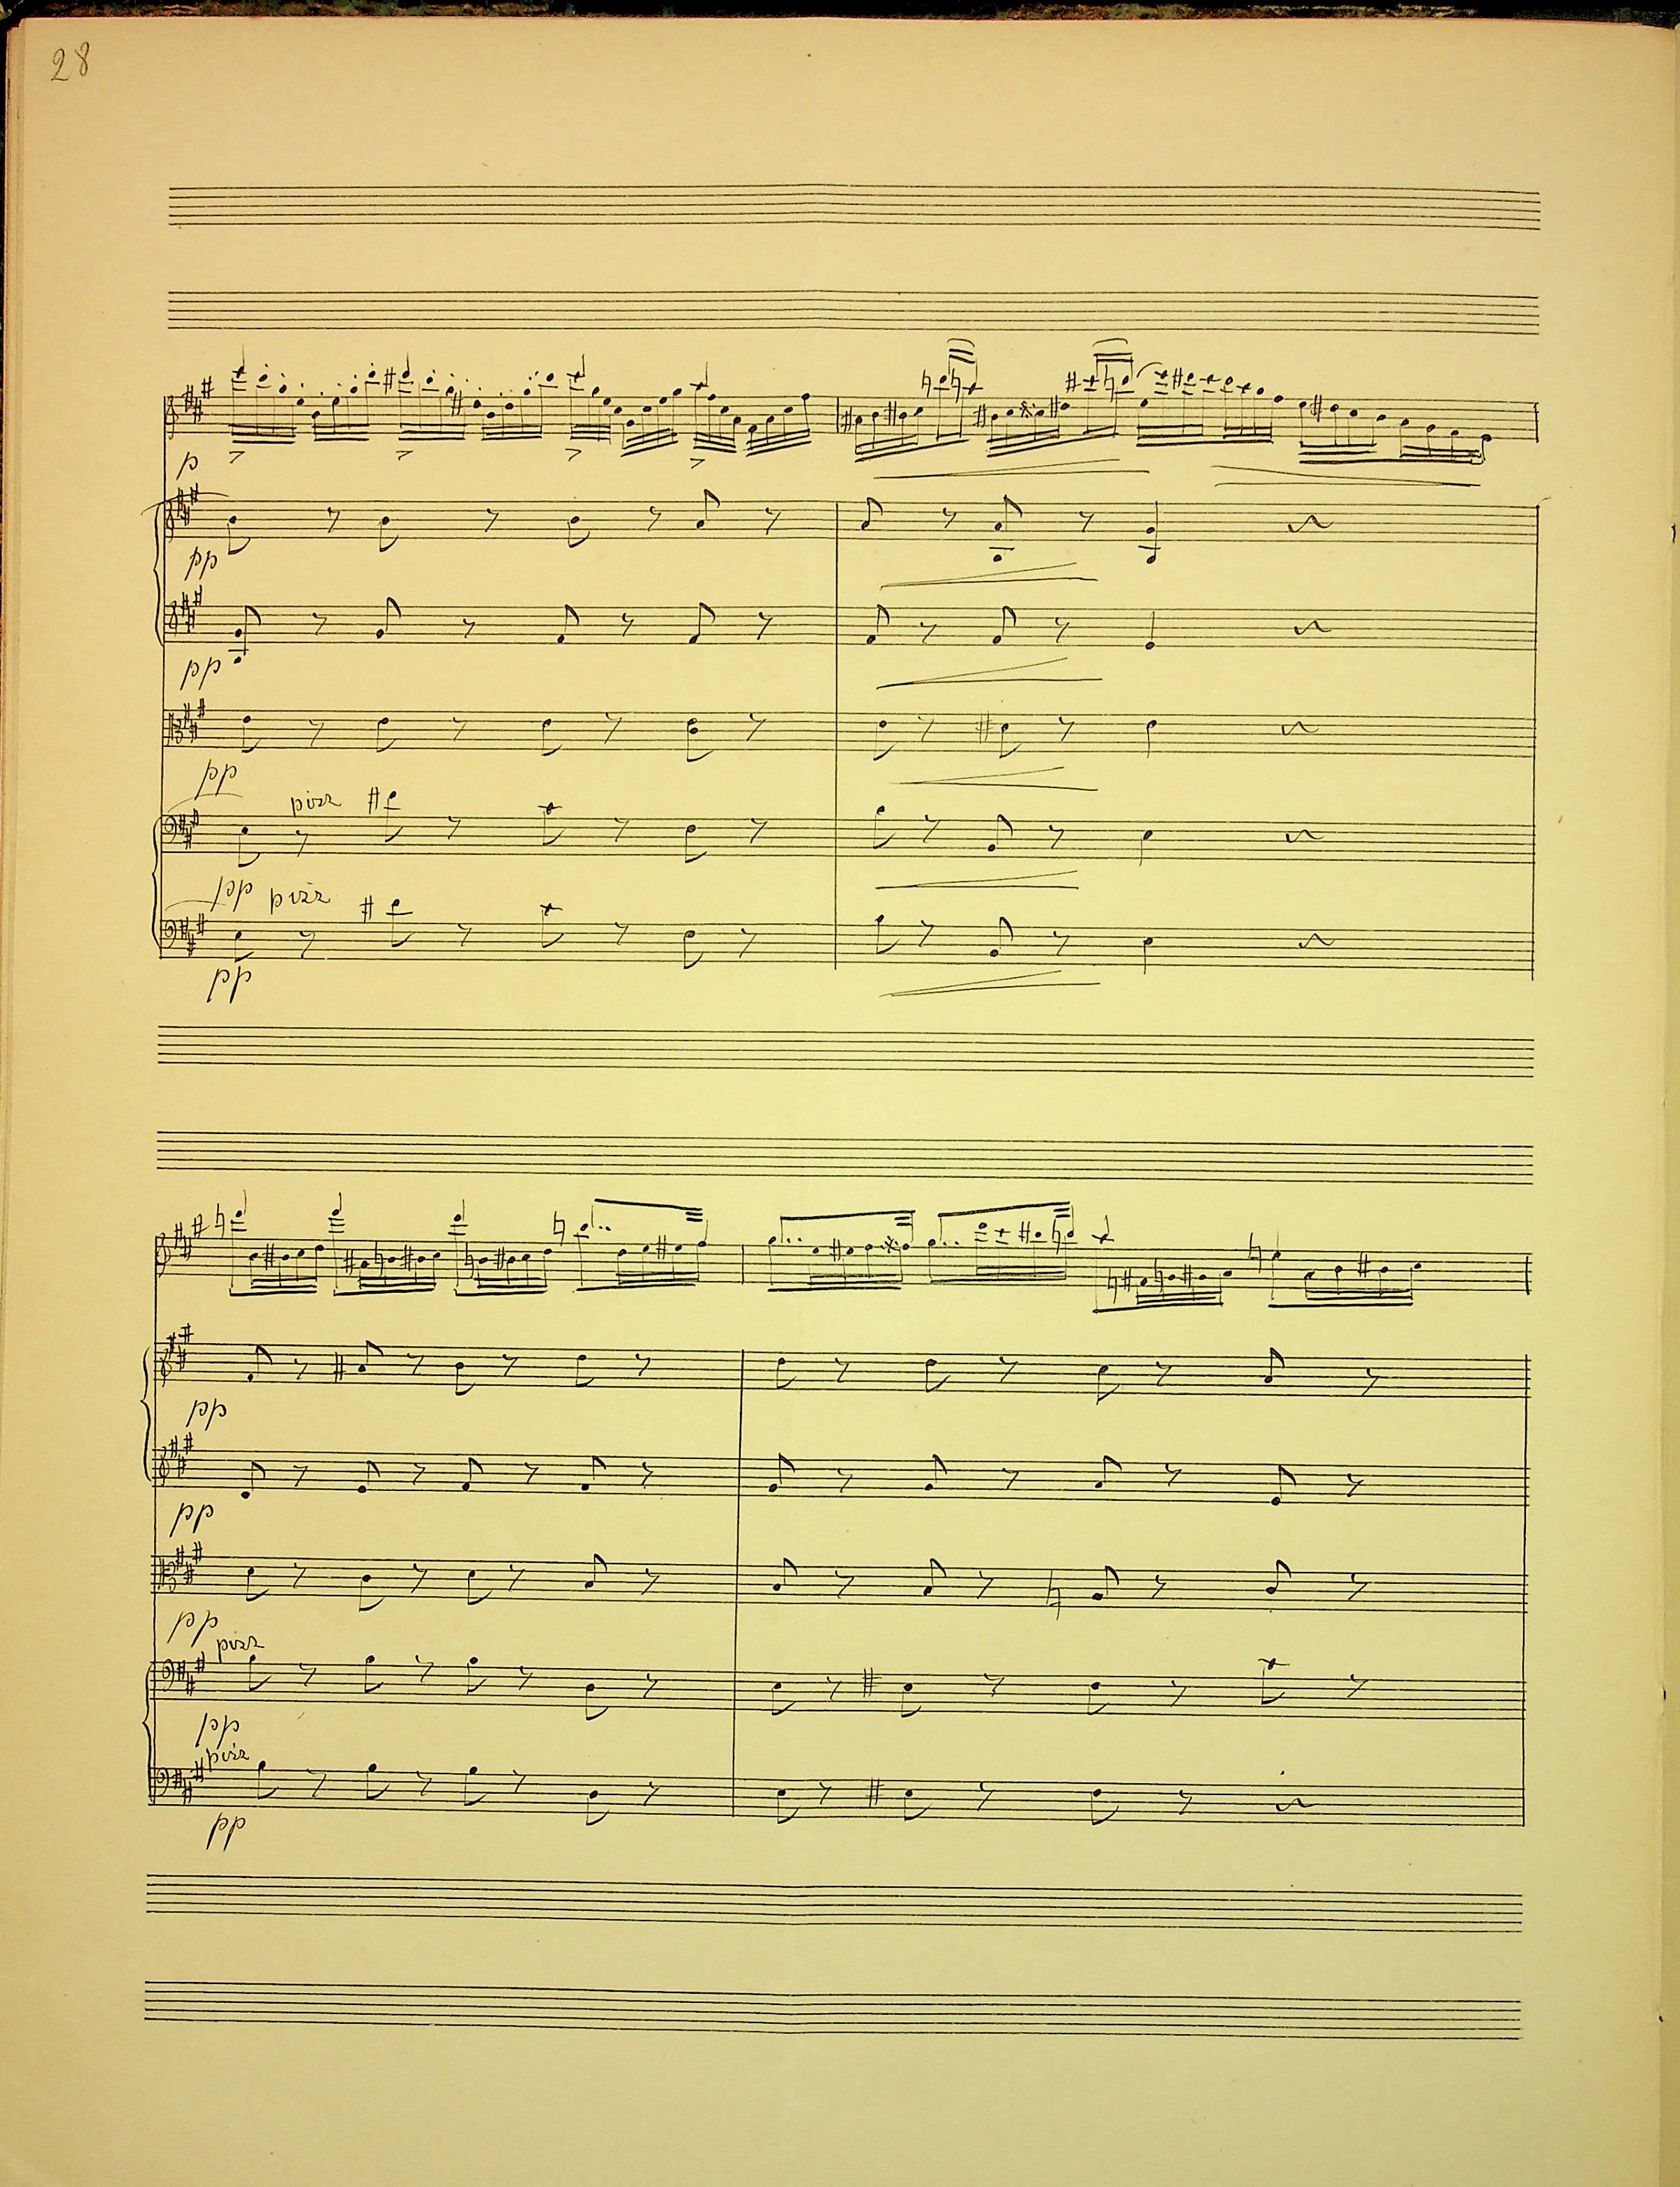 28
p
pp
pp
pp
pizz
pp
pizz
pp
pp
pp
pp
pizz
pp
pizz
pp